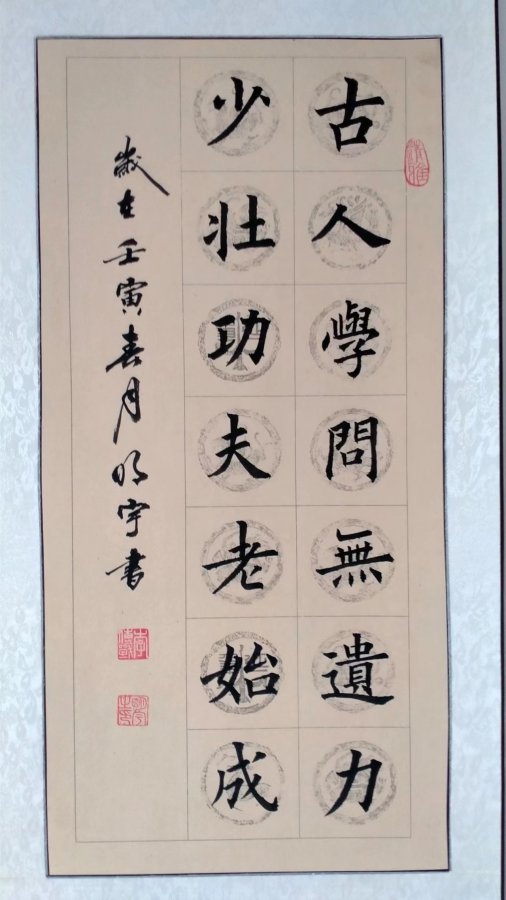 古人學問無遺力
少壯功夫老始成
歲在壬寅春月明宇書